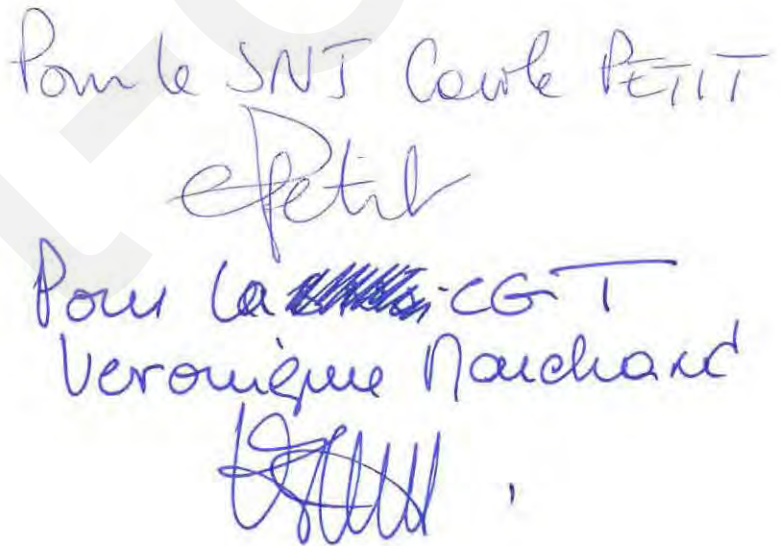 Pour le SNJ Carole PETIT
CPetit
Pour la CGT
Veronique Marchand